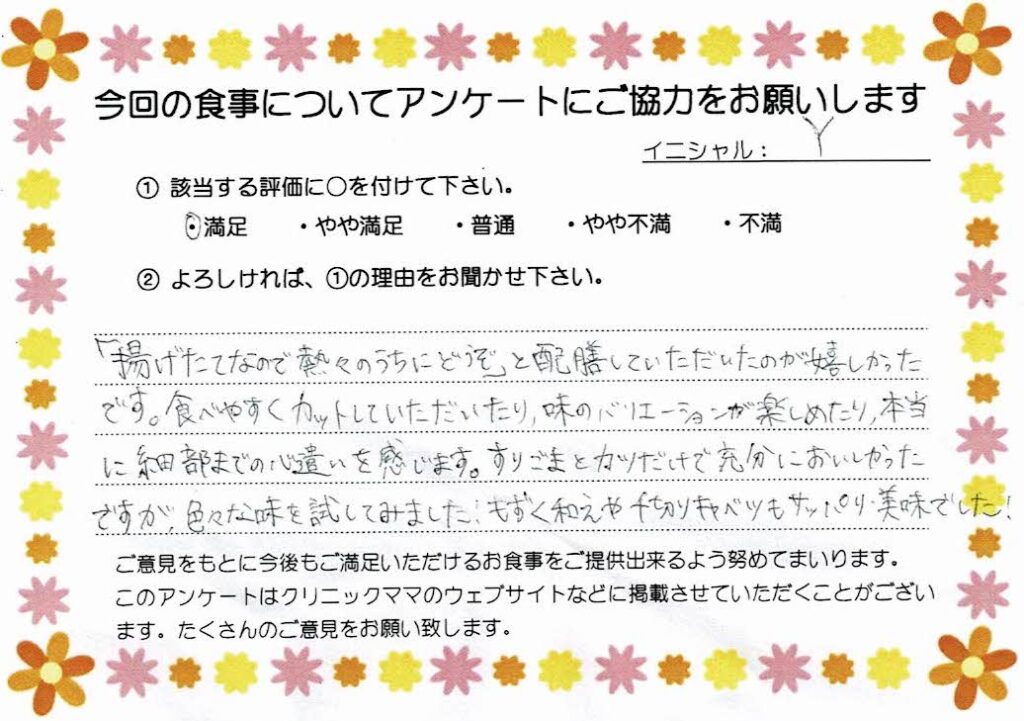 今回の食事についてアンケートにご協力をお願いします
イニシャル： Y
① 該当する評価に○を付けて下さい。
・満足 ・やや満足 ・普通 ・やや不満 ・不満
② よろしければ、①の理由をお聞かせ下さい。
「揚げたてなので熱々のうちにどうぞ」と配膳していただいたのが嬉しかった
です。食べやすくカットしていただいたり,味のバリエーションが楽しめたり,本当
に細部までの心遣いを感じます。すりごまとカツだけで充分においしかった
ですが,色々な味を試してみました！もずく和えや千切りキャベツもサッパリ美味でした！
ご意見をもとに今後もご満足いただけるお食事をご提供出来るよう努めてまいります。
このアンケートはクリニックママのウェブサイトなどに掲載させていただくことがござい
ます。たくさんのご意見をお願い致します。